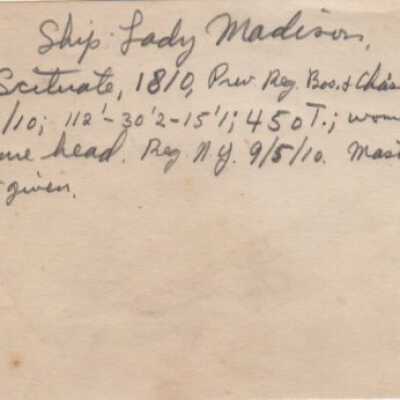 Ship Lady Madison,
Scituate, 1810, Prev. Reg. Bos. & Chas
/10; 112'-30'2-15'1; 450 T.; wom
head. Reg N.Y. 9/5/10. Mast
given.